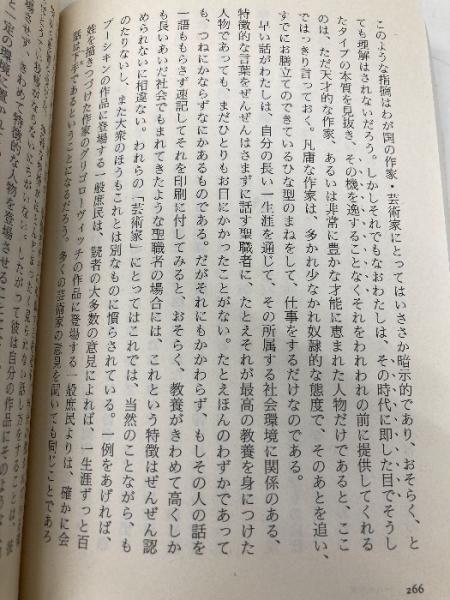 このような指摘はわが国の作家・芸術家にとってはいささか暗示的であり、おそらく、と
ても理解はされないだろう。しかしそれでもなおわたしは、その時代に即した目でそうし
たタイプの本質を見抜き、その機を逸することなくそれをわれわれの前に提供してくれる
のは、ただ天才的な作家、あるいは非常に豊かな才能に恵まれた人物だけであると、ここ
ではっきり言っておく。凡庸な作家は、多かれ少なかれ奴隷的な態度で、そのあとを追い、
すでにお膳立てのできているひな型のまねをして、仕事をするだけなのである。
早い話がわたしは、自分の長い一生涯を通じて、その所属する社会環境に関係のある、
特徴的な言葉をぜんぜんはさまずに話す聖職者に、たとえそれが最高の教養を身につけた
人物であっても、まだひとりもお目にかかったことがない。たとえほんのわずかであって
も、つねにかならずなにかあるものである。だがそれにもかかわらず、もしその人の話を
一語ももらさず速記してそれを印刷に付してみると、おそらく、教養がきわめて高くしか
も良いあいだ社会でもまれてきたような聖職者の場合には、これという特徴はぜんぜん認
められないに相違ない。われらの「芸術家」にとってはこれでは、当然のことながら、も
のたりないし、また大衆のほうもこれとは別なものに慣らされている。一例をあげれば、
プーシキンの作品に登場する一般庶民は、読者の大多数の意見によれば、一生涯ずっと百
姓を描きつづけた作家のグリゴローヴィッチの作品に登場する一般庶民よりは、確かに会
話は下手であるということになるだろう。多くの芸術家の意見を聞いても同じことであろ
266